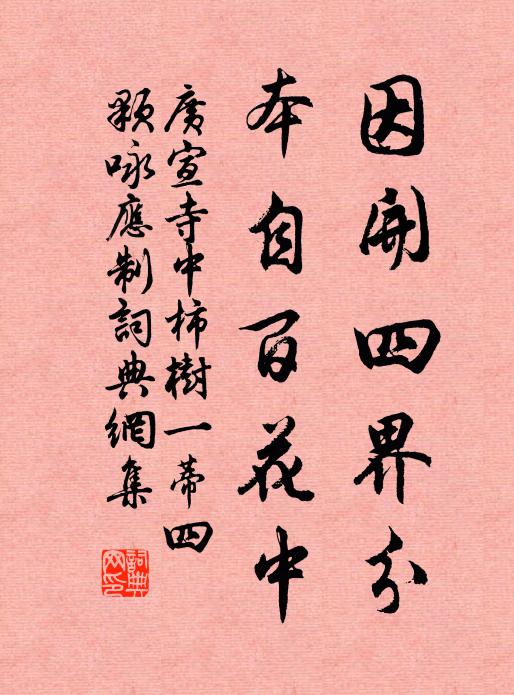 因開四界分
本自百花中
廣宣寺中柿樹一蒂四
顆咏應制詞典網集
詞典網印